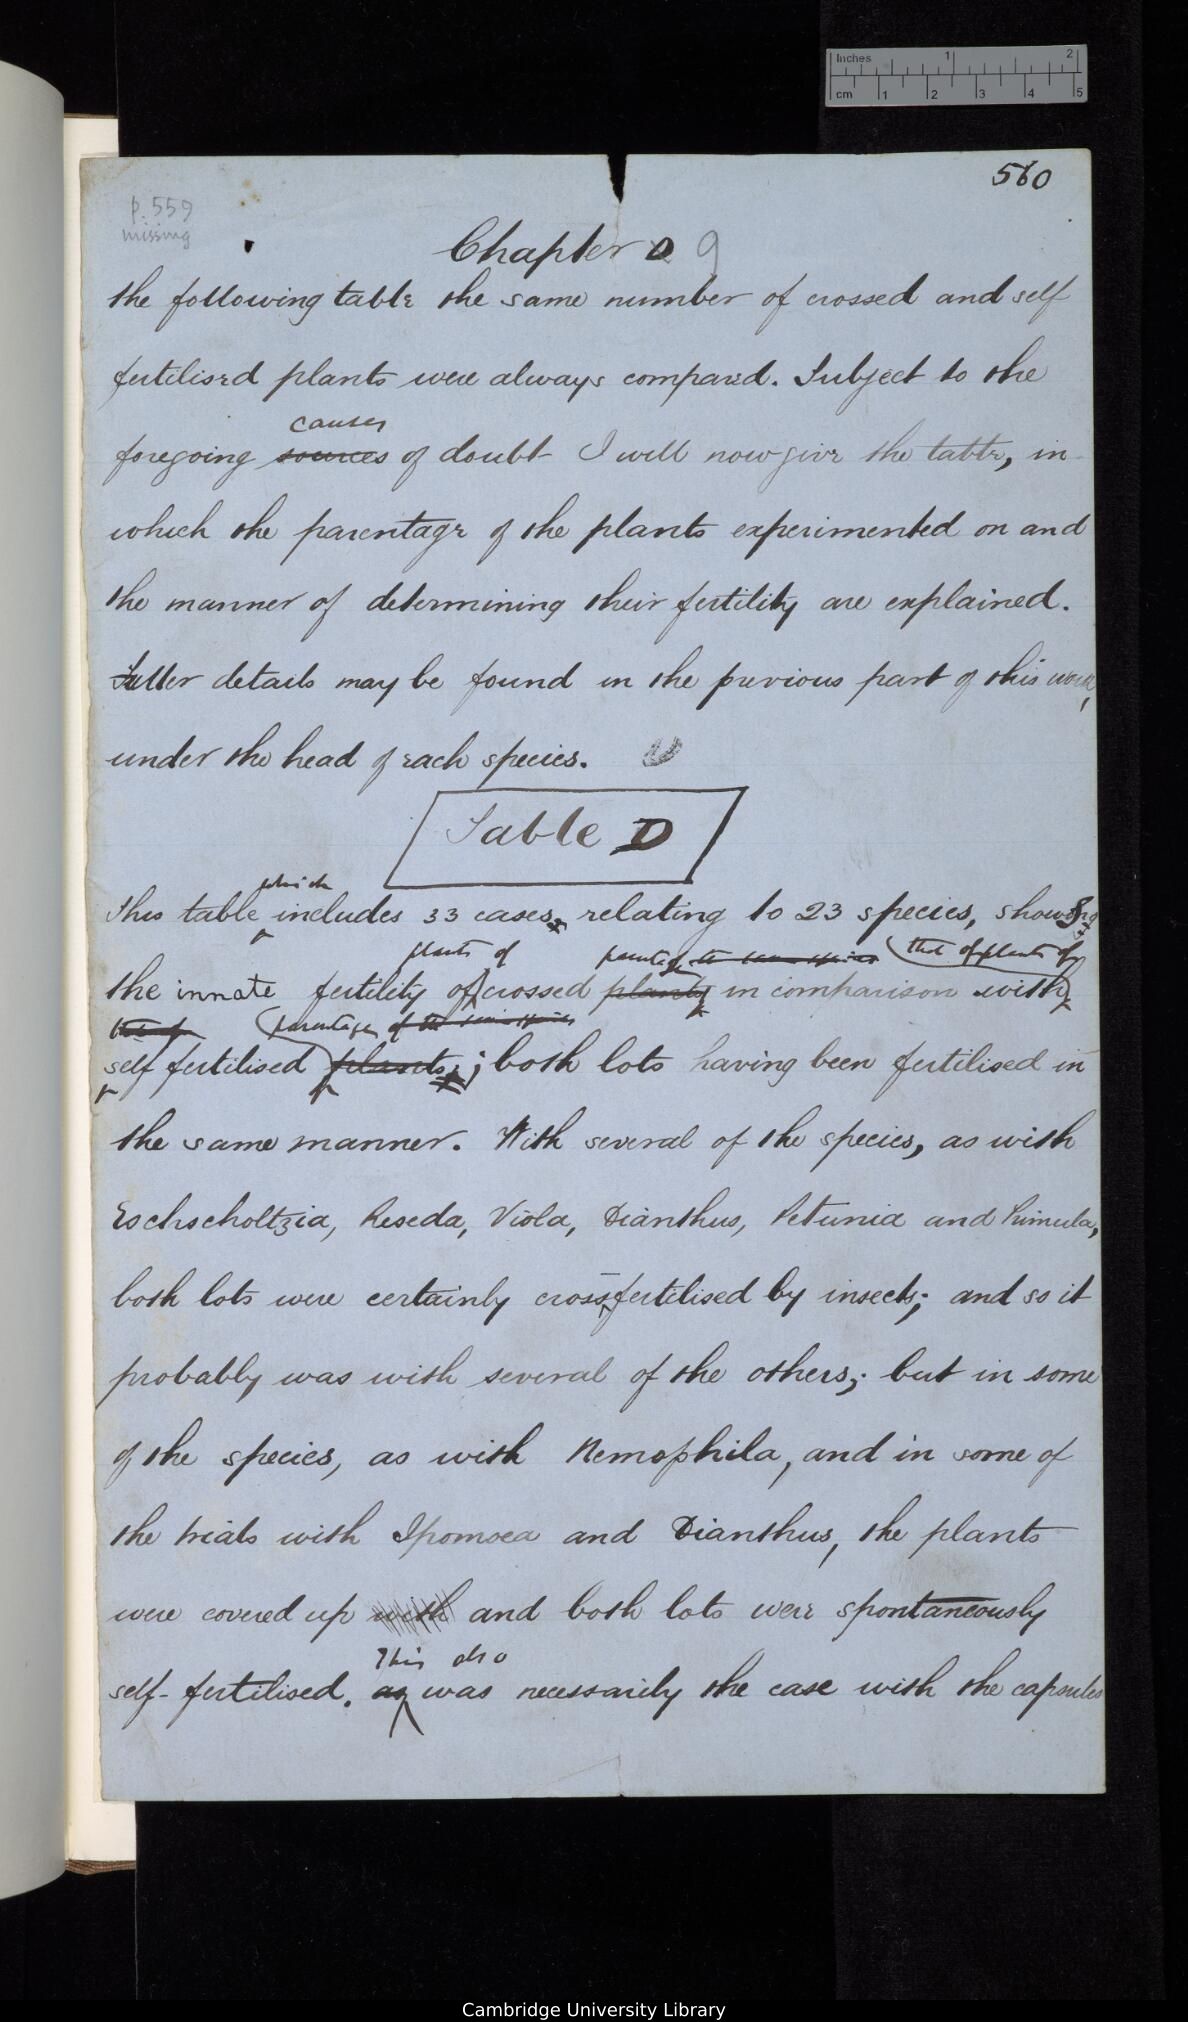 Inches 1 2
cm 1 2 3 4 5
560
p. 559
missing
Chapter D 9
the following table the same number of crossed and self
fertilised plants were always compared. Subject to the
causes
foregoing sources of doubt I will now give the table, in
which the parentage of the plants experimented on and
the manner of determining their fertility are explained.
Fuller details may be found in the previous part of this work,
under the head of each species.
Table D
which
This table includes 33 cases, relating to 23 species, shows
plants of parentage the same species that of plants of
the innate fertility of crossed plants, in comparison with
that of parentage of the same species
self fertilised plants; both lots having been fertilised in
the same manner. With several of the species, as with
Eschscholtzia, Reseda, Viola, Dianthus, Petunia and Primula,
both lots were certainly cross-fertilised by insects; and so it
probably was with several of the others; but in some
of the species, as with Nemophila, and in some of
the trials with Ipomoea and Dianthus, the plants
were covered up and both lots were spontaneously
This also
self-fertilised. as was necessarily the case with the capsules
Cambridge University Library